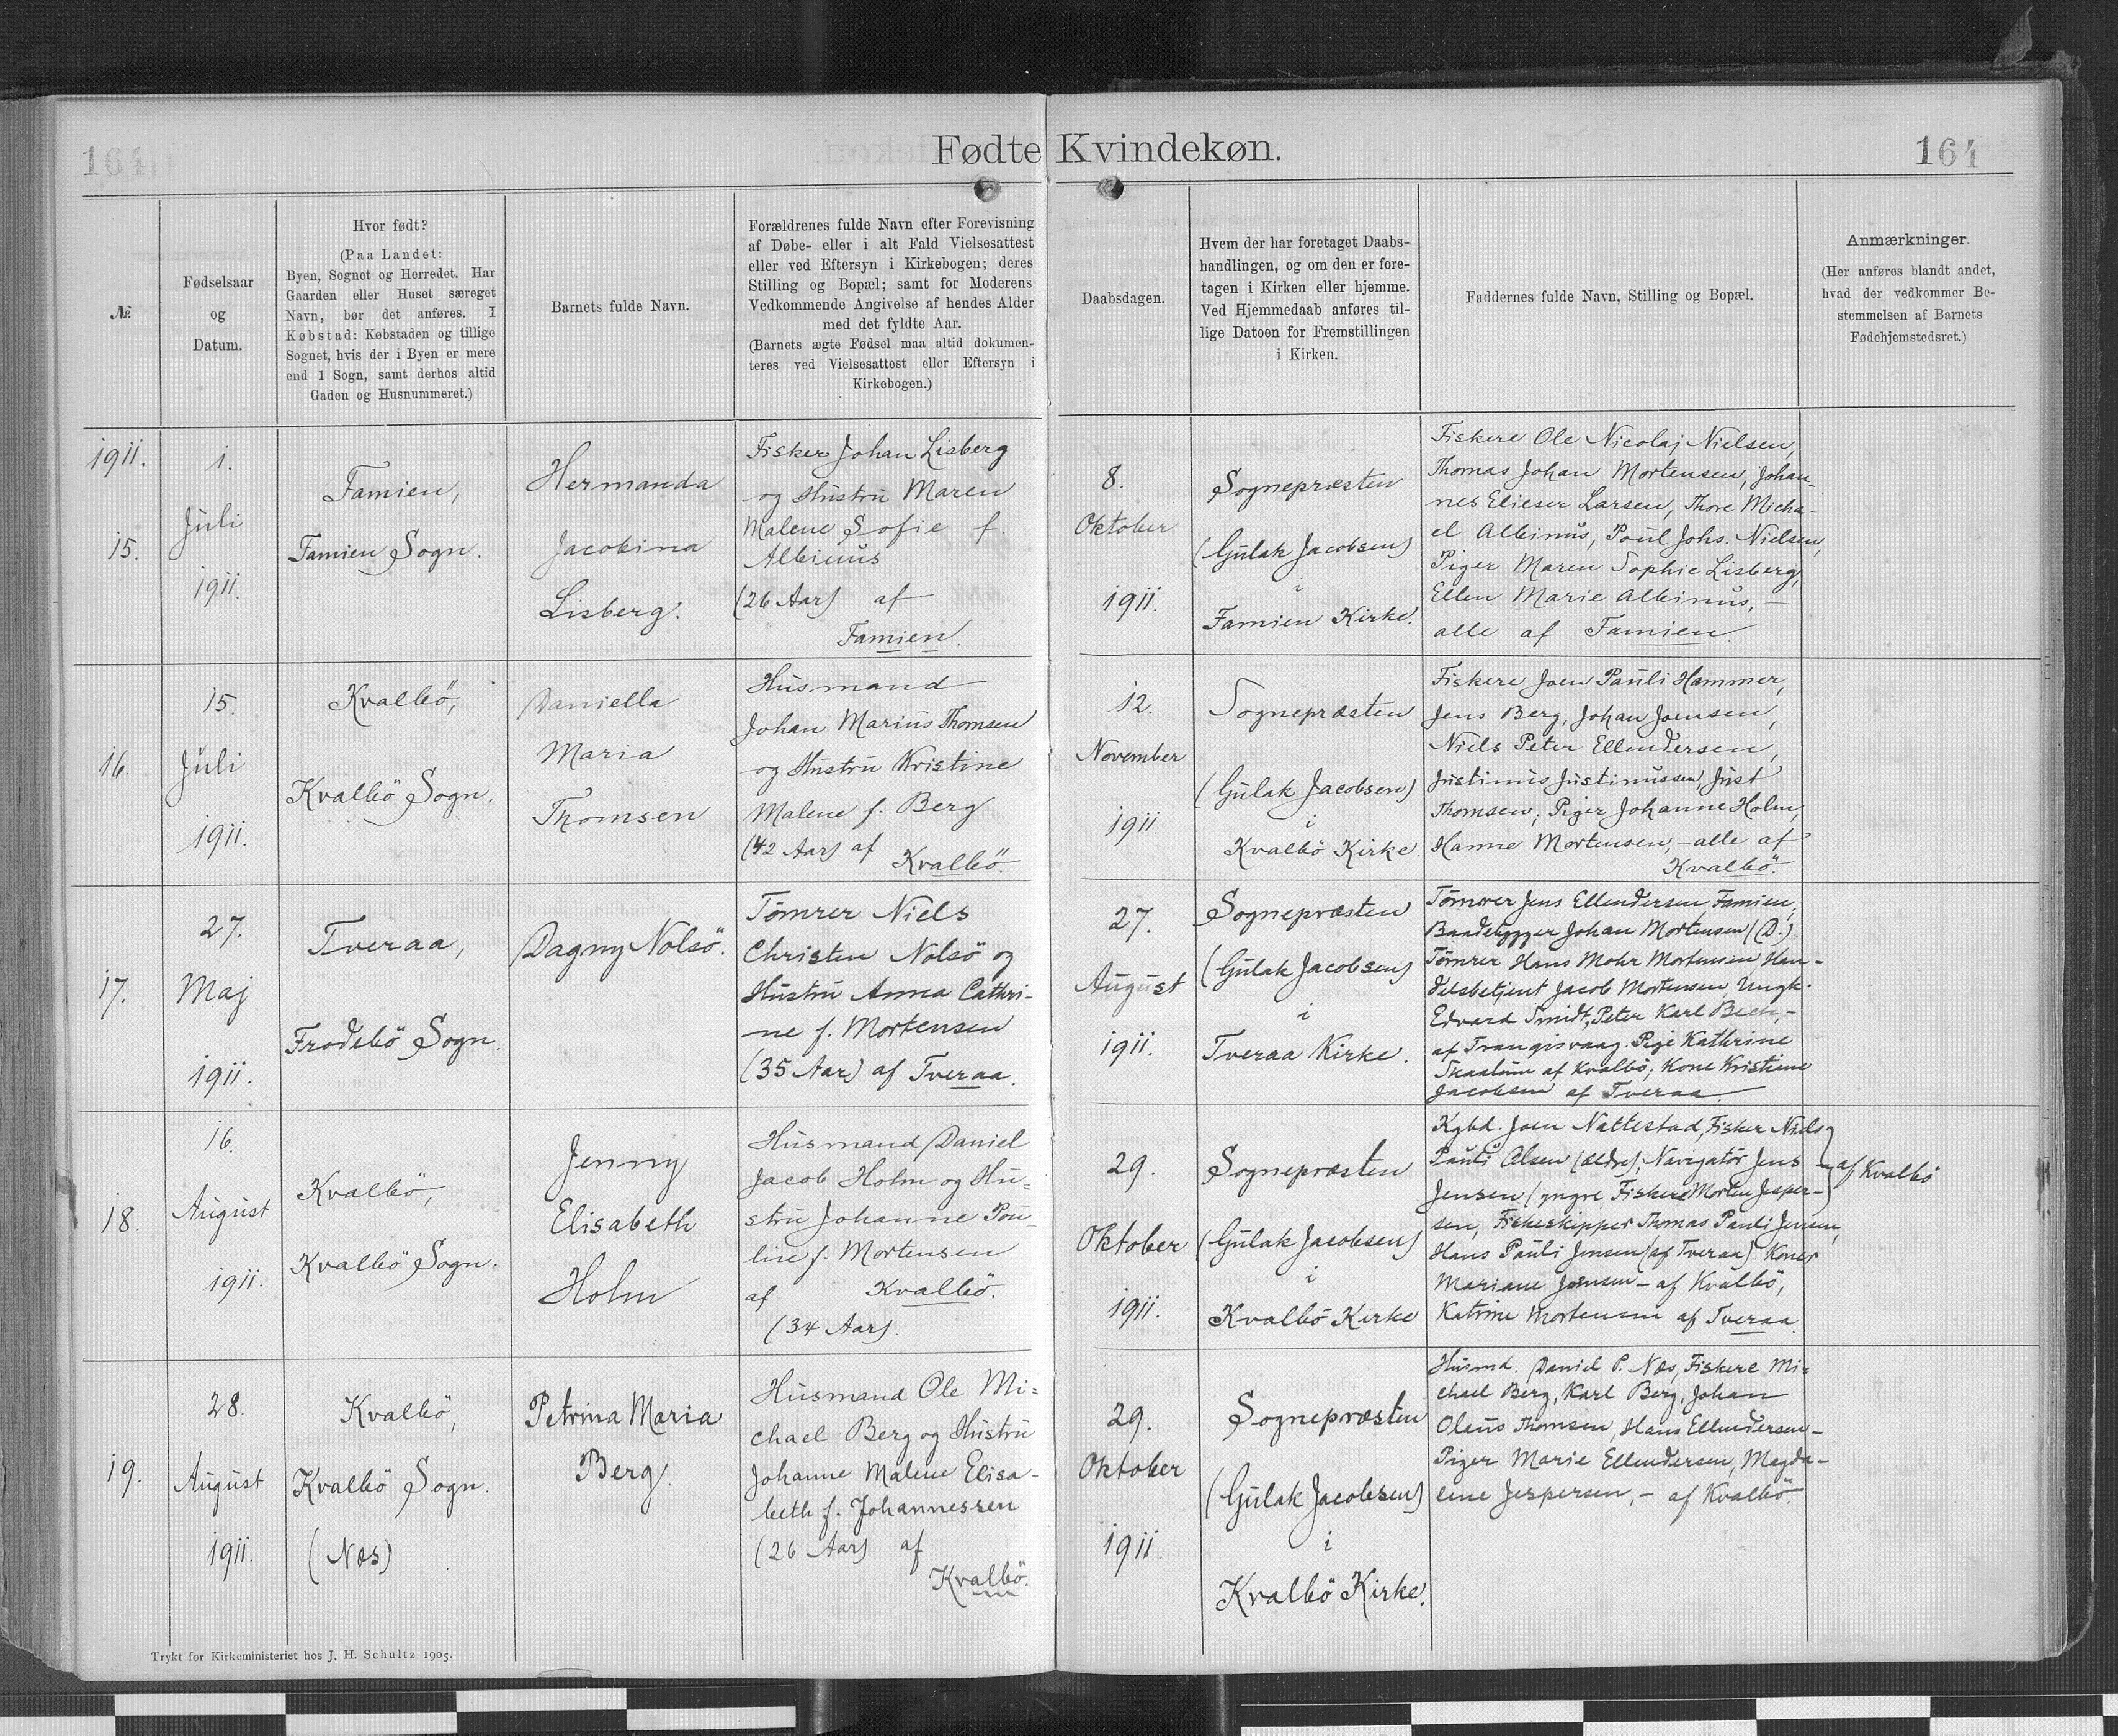 164
Fødte Kvindekøn.
164
№
Fødselsaar
og
Datum.
Hvor født?
(Paa Landet:
Byen, Sognet og Herredet. Har
Gaarden eller Huset særeget
Navn, bør det anføres. I
Købstad: Købstaden og tillige
Sognet, hvis der i Byen er mere
end 1 Sogn, samt derhos altid
Gaden og Husnummeret.)
Barnets fulde Navn.
Forældrenes fulde Navn efter Forevisning
af Døbe- eller i alt Fald Vielsesattest
eller ved Eftersyn i Kirkebogen; deres
Stilling og Bopæl; samt for Moderens
Vedkommende Angivelse af hendes Alder
med det fyldte Aar.
(Barnets ægte Fødsel maa altid dokumen-
teres ved Vielsesattest eller Eftersyn i
Kirkebogen.)
Daabsdagen.
Hvem der har foretaget Daabs-
handlingen, og om den er fore-
tagen i Kirken eller hjemme.
Ved Hjemmedaab anføres til-
lige Datoen for Fremstillingen
i Kirken.
Faddernes fulde Navn, Stilling og Bopæl.
Anmærkninger.
(Her anføres blandt andet,
hvad der vedkommer Be-
stemmelsen af Barnets
Fødehjemstedsret.)
1911.
15.
1.
Juli
1911.
Famien,
Famien Sogn.
Hermanda
Jacobina
Lisberg.
Fisker Johan Lisberg
og Hustru Maren
Malene Sofie f.
Albinus
(26 Aar) af
Famien.
8.
Oktober
1911.
Sognepræsten
(Gulak Jacobsen)
i
Famien Kirke.
Fiskere Ole Nicolaj Nielsen,
Thomas Johan Mortensen, Johan-
nes Elieser Larsen, Thore Micha-
el Albinus, Poul Johs. Nielsen,
Piger Maren Sophie Lisberg,
Ellen Marie Albinus, -
alle af Famien.
16.
15.
Juli
1911.
Kvalbö,
Kvalbö Sogn.
Daniella
Maria
Thomsen
Husmand
Johan Marius Thomsen
og Hustru Kristine
Malene f. Berg
(42 Aar) af
Kvalbö.
12.
November
1911.
Sognepræsten
(Gulak Jacobsen)
i
Kvalbö Kirke.
Fiskere Joen Pauli Hammer,
Jens Berg, Johan Joensen,
Niels Peter Ellendersen,
Justinus Justinussen, Just
Thomsen; Piger Johanne Holm,
Hanne Mortensen, - alle af
Kvalbö.
17.
27.
Maj
1911.
Tveraa,
Frodebö Sogn.
Dagny Nolsö.
Tömrer Niels
Christen Nolsö og
Hustru Anna Cathri-
ne f. Mortensen
(35 Aar) af Tveraa.
27.
August
1911.
Sognepræsten
(Gulak Jacobsen)
i
Tveraa Kirke.
Tömrer Jens Ellendersen, Famien,
Baadebygger Johan Mortensen (D.)
Tömrer Hans Mohr Mortensen, Han-
delsbetjent Jacob Mortensen, Ungk.
Edvard Smidt, Peter Karl Bech, -
af Trangisvaag. Pige Kathrine
af Kvalbö; Kone Kristiene
Jacobsen af Tveraa
18.
16.
August
1911.
Kvalbö,
Kvalbö Sogn.
Jenny
Elisabeth
Holm
Husmand Daniel
Jacob Holm og Hu=
stru Johanne Pou-
line f. Mortensen
af Kvalbö.
(34 Aar).
29.
Oktober
1911.
Sognepræsten
(Gulak Jacobsen)
i
Kvalbö Kirke
Kgbd. Joen Nattestad, Fisker Niels
Pauli Olsen (ældre), Navigatör Jens
Jensen (yngre, Fiskere Morten Jesper-
sen, Fiskeskipper Thomas Pauli Jensen,
Hans Pauli Jensen (af Tveraa) Koner
Mariane Joensen - af Kvalbö,
Katrine Mortensen af Tveraa.
af Kvalbö
19.
28.
August
1911.
Kvalbö,
Kvalbö Sogn.
(Næs)
Petrina Maria
Berg.
Husmand Ole Mi=
chael Berg og Hustru
Johanne Malene Elisa-
beth f. Johannessen
(26 Aar) af
Kvalbö.
29.
Oktober
1911
Sognepræsten
(Gulak Jacobsen)
i
Kvalbö Kirke.
Husmd. Daniel P. Næs, Fiskere Mi=
chael Berg, Karl Berg, Johan
Olaus Thomsen, Hans Ellendersen -
Piger Marie Ellendersen, Magda-
lene Jespersen, - af Kvalbö.
Trykt for Kirkeministeriet hos J. H. Schultz 1905.